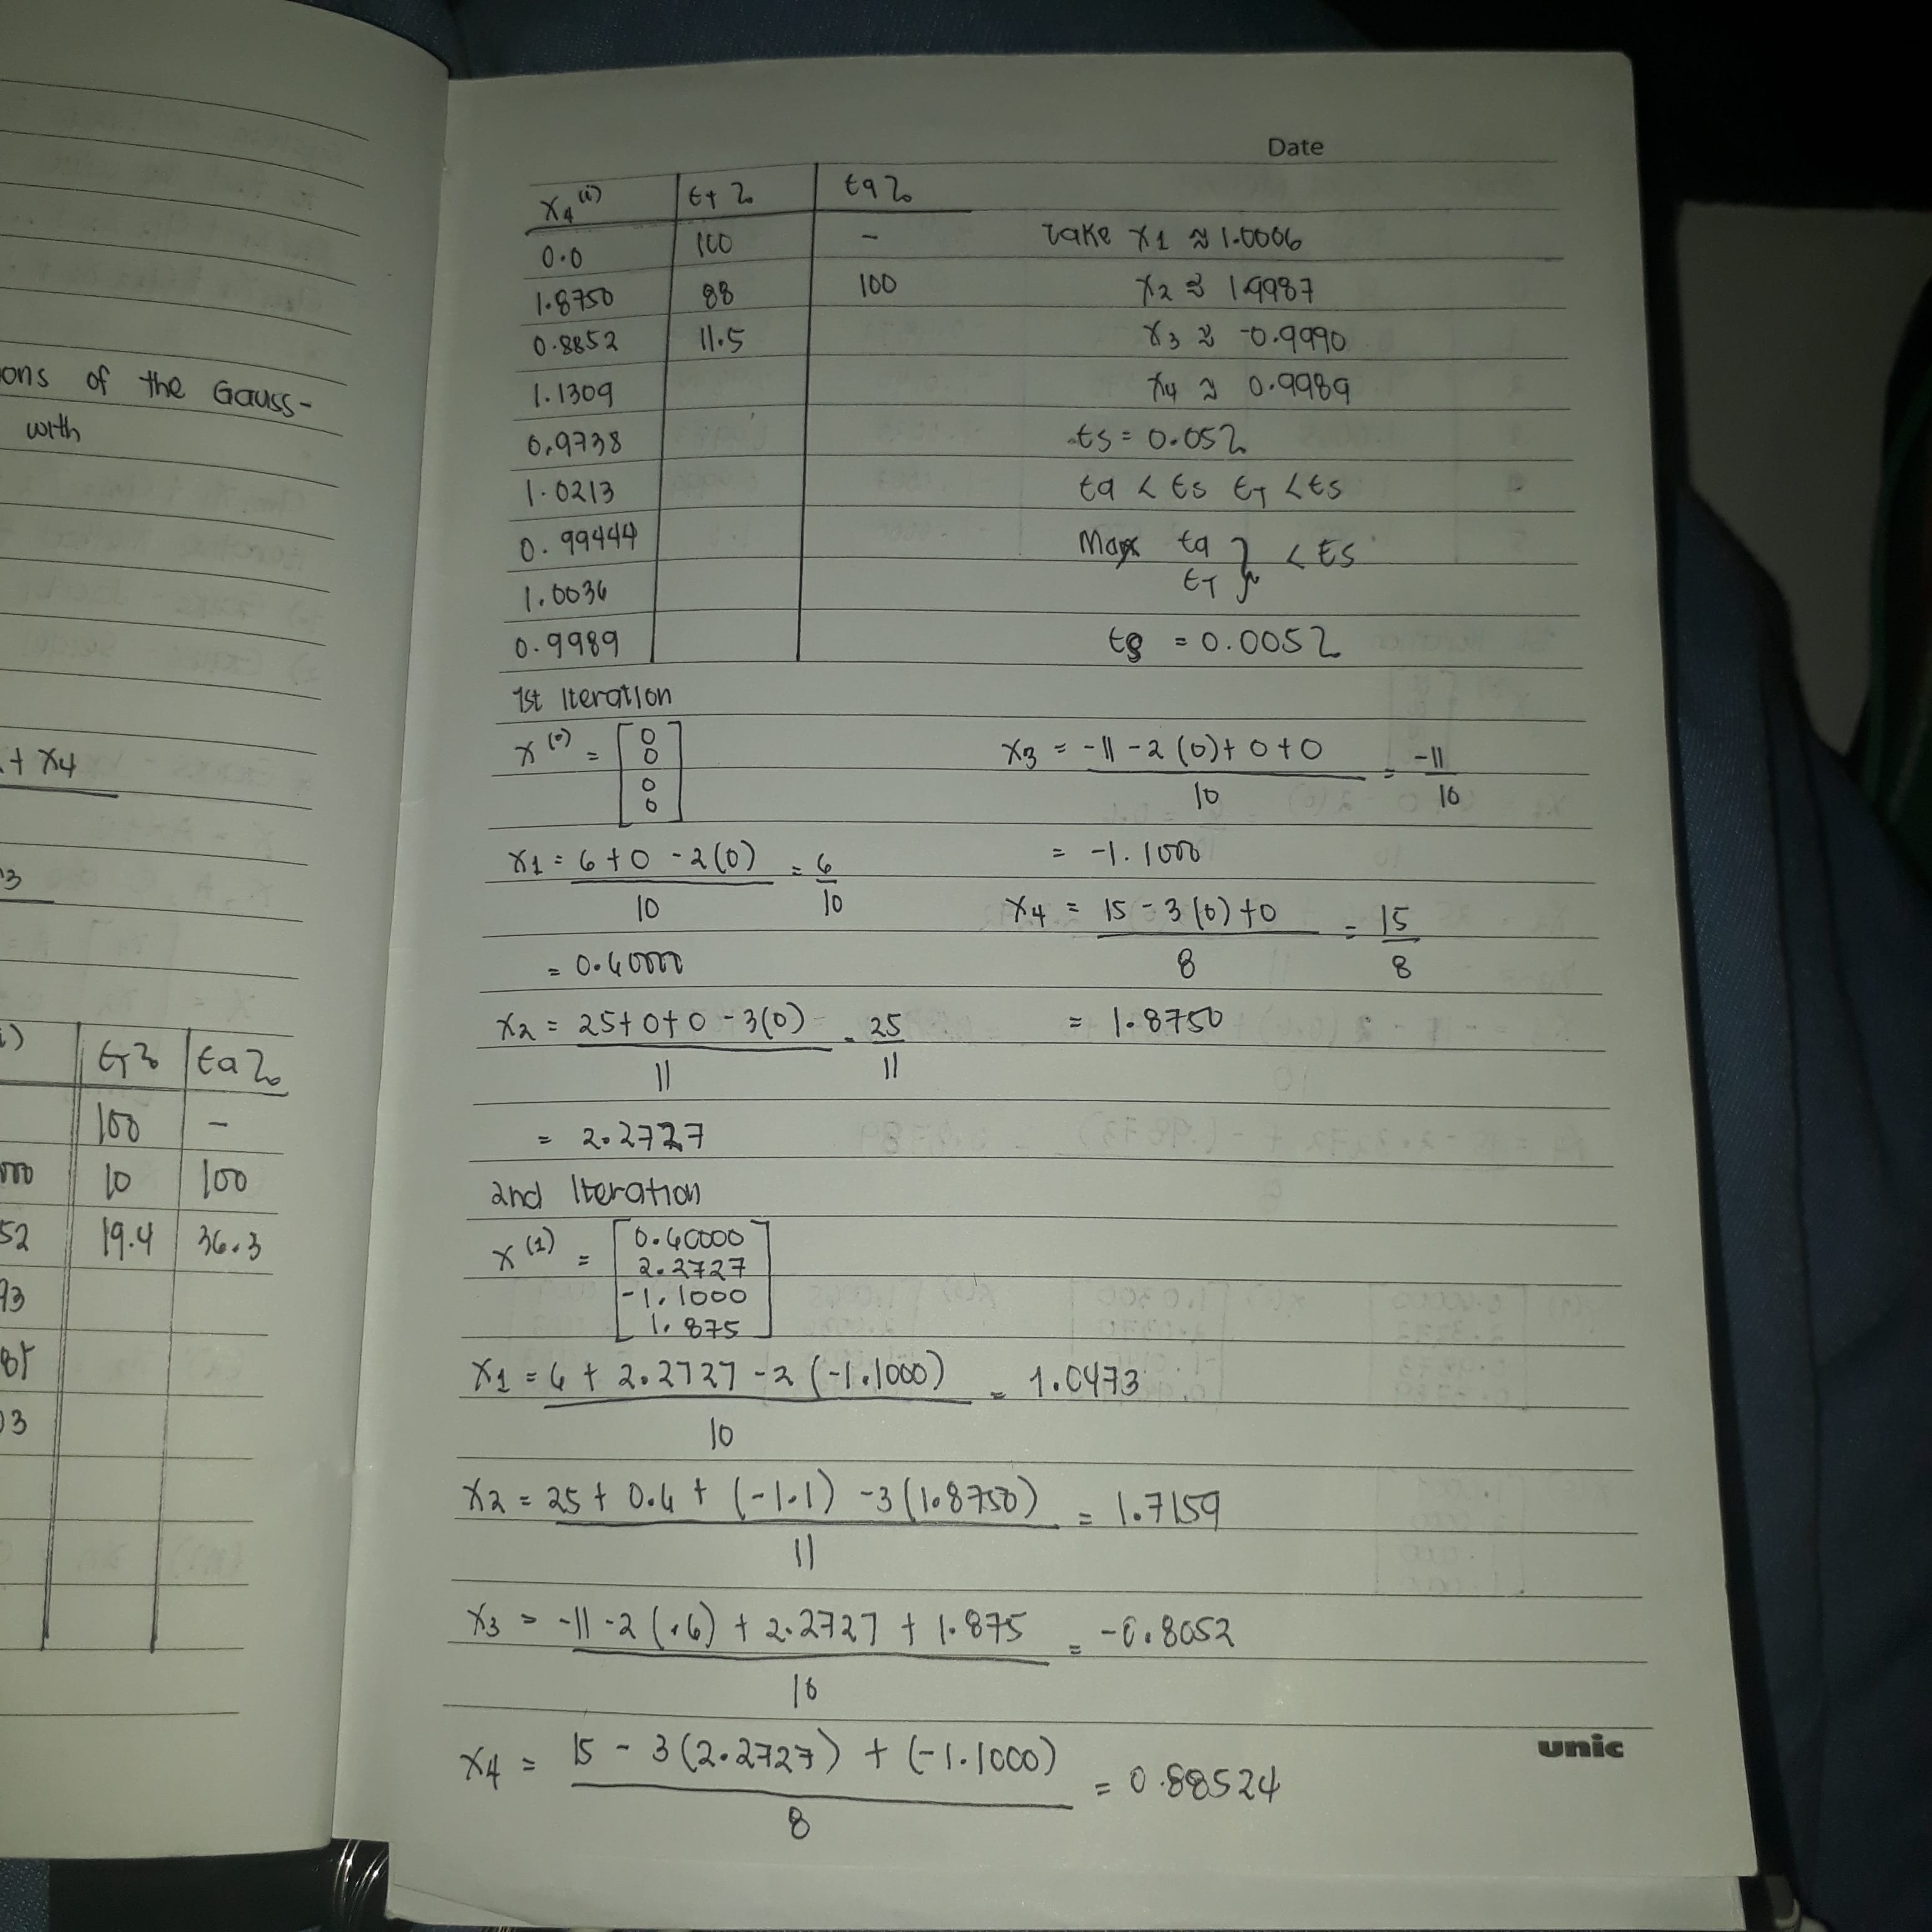 ons of the Gauss-
with
. + x4
3
i) | ЄT % | Єa %
100 | -
000 | 10 | 100
52 | 19.4 | 36.3
93
85
03
Date
x4^(i) | Єt % | Єa %
0.0 | 100 | -
1.8750 | 88 | 100
0.8852 | 11.5
1.1309
0.9738
1.0213
0.99444
1.0036
0.9989
Take x1 ≈ 1.0006
x2 ≈ 1.9987
x3 ≈ -0.9990
x4 ≈ 0.9989
Єs = 0.05%
Єa < Єs ЄT < Єs
Max Єa } < Єs
ЄT
Єs = 0.005%
1st Iteration
x^(0) = [0
0
0
0]
x1 = 6 + 0 - 2(0) / 10 = 6/10
= 0.60000
x2 = 25 + 0 + 0 - 3(0) / 11 = 25/11
= 2.2727
x3 = -11 - 2(0) + 0 + 0 / 10 = -11/10
= -1.1000
x4 = 15 - 3(0) + 0 / 8 = 15/8
= 1.8750
2nd Iteration
x^(1) = [0.60000
2.2727
-1.1000
1.875]
x1 = 6 + 2.2727 - 2(-1.1000) / 10 = 1.0473
x2 = 25 + 0.6 + (-1.1) - 3(1.8750) / 11 = 1.7159
x3 = -11 - 2(.6) + 2.2727 + 1.875 / 10 = -0.8052
x4 = 15 - 3(2.2727) + (-1.1000) / 8 = 0.88524
unic